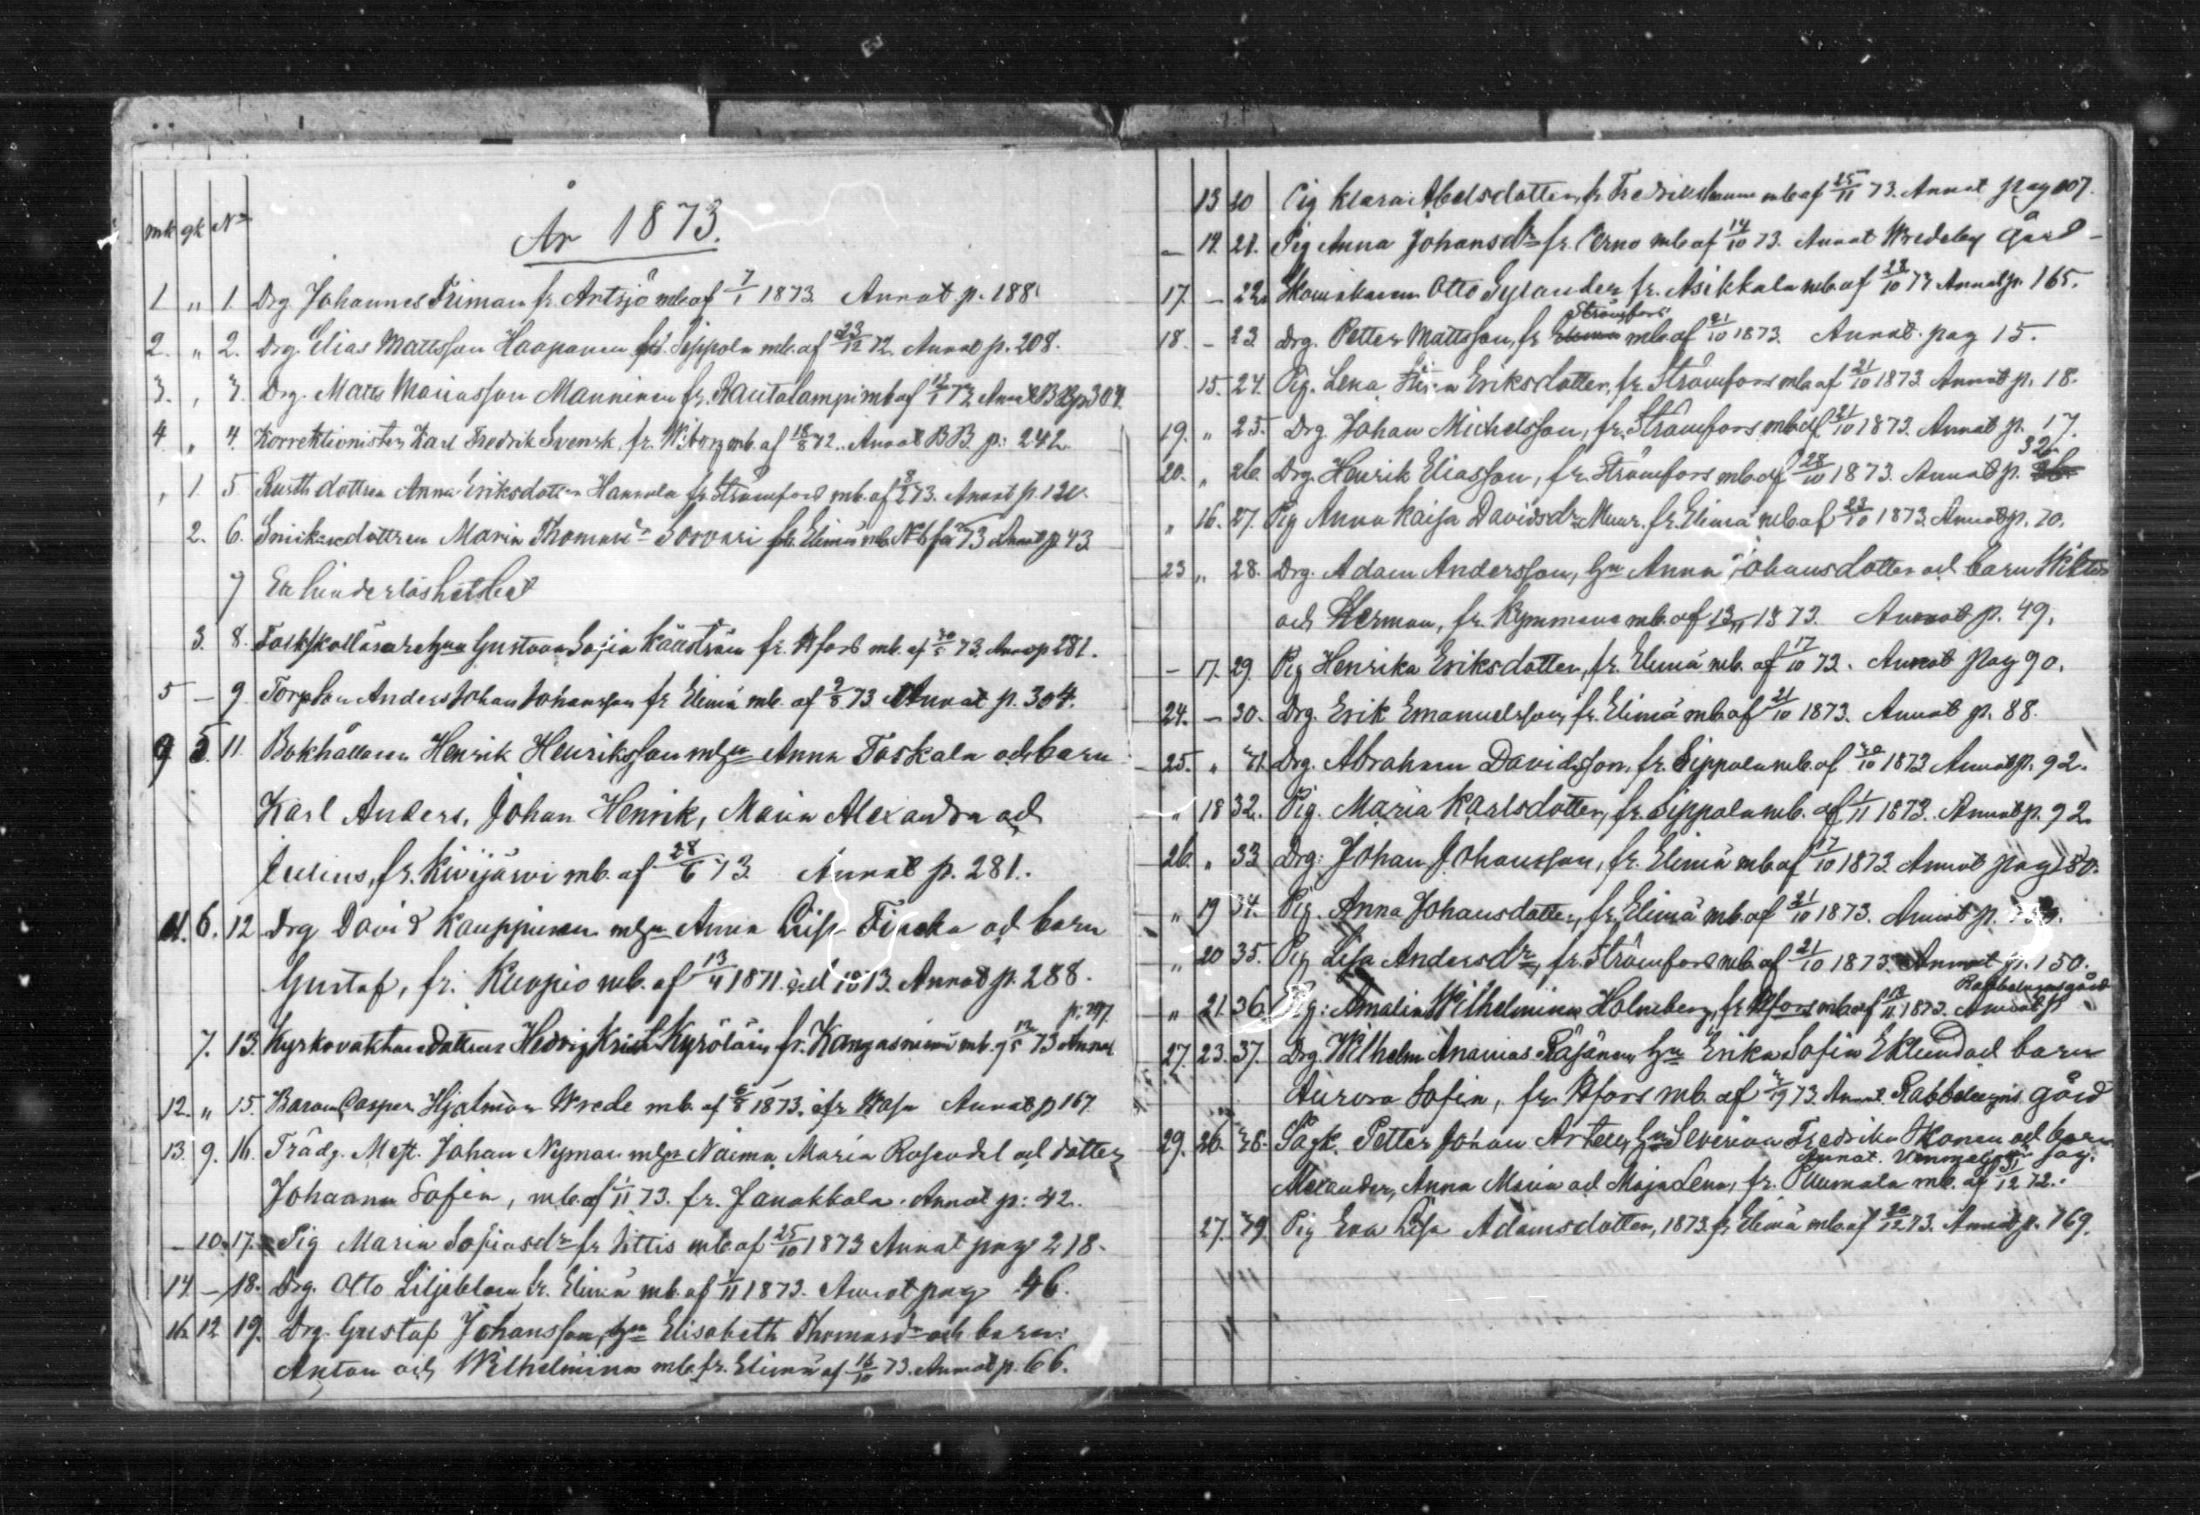 mk gk No
År 1873.
1 " 1 Drg. Johannes Friman fr. Artsjö mb. af 7/1 1873 Annot p. 188.
2. " 2. Drg. Elias Mattsson Haapanen fr. Sippola mb. af 23/12 72. Annot p. 208.
3. , 3. Drg. Matts Manninen fr. Rautalampi mb af Annot BB p 304.
4 " 4. Korrektionisten Karl Fredrik Svensk, fr. Wiborg mb. af 18/8 72. Annot BB. p: 242.
, 1 5 Anna Eriksdotter Hannula fr. Strömfors mb. af 73. Annot p. 120.
2. 6. Snickaredottren Maria Thomasdr Sorvari fr. Elimä mb. 73 Annot p. 43
7 En hinderlöshetsbet
3. 8. Gustava fr. Hfors mb. af 73. Annot p 281.
5 – 9 Torp Son Anders Johan Johansson fr Elimä mb. af 9/8 73 Annot p. 304.
9 5. 11. Bokhållaren Henrik Henriksson m hu Anna Toskala och barn
Karl Anders, Johan Henrik, Maria Alexandra och
Julius, fr. Kivijärvi mb. af 28/6 73. Annot p. 281.
11. 6. 12 Drg David Kauppinen m hu Anna Lisa och barn
Gustaf, fr. Kuopio mb. af 13/11 1871. Annot p. 288.
p. 297.
7. 13. Kyrkovaktaredottren Hedvig Krist. fr. Kangasniemi mb. 73 Annot
12. " 15. Baron Casper Hjalmar Wrede mb. af 6/8 1873. fr Wasa Annot p 167
13. 9. 16. Trädg. Mest. Johan Nyman m hu Naima Maria Rosendel och dotter
Johanna Sofia, mb. af 1/11 73. fr. Janakkala. Annot p: 42.
– 10. 17. Pig Maria fr Iittis mb. af 25/10 1873 Annot pag 218.
14 – 18. Drg. Otto Liljeblom fr. Elimä mb. af 1/11 1873. Annot pag 46.
16 12 19. Drg. Gustaf Johansson, hu Elisabeth Thomasdr och barn:
Anton och Wilhelmina mb. fr. Elimä af 16/10 73. Annot p. 66.
13 20 Pig Klara Abelsdotter, fr Fredrikshamn mb af 25/11 73. Annot pag 107.
– 14. 21. Pig Anna Johansdr fr. Perno mb af 14/10 73. Annot Wredeby gård –
17. – 22. Skomakaren Otto Sylander fr. Asikkala mb. af 28/10 73 Annot p. 165.
Strömfors
18. – 23. Drg. Petter Mattsson, fr Elimä mb. af 21/10 1873. Annot. pag 15.
15. 24. Pig. Lena Eriksdotter, fr. Strömfors mb. af 21/10 1873 Annot p. 18.
19. " 25. Drg. Johan Michelsson, fr. Strömfors mb. af 21/10 1873. Annot p. 17.
32
20. " 26. Drg. Henrik Eliasson, fr. Strömfors mb. af 28/10 1873. Annot p.
" 16. 27. Pig Anna Kaisa Davidsdr fr. Elimä mb. af 23/10 1873. Annot p. 70.
23 " 28. Drg. Adam Andersson, hu Anna Johansdotter och barn Wiktor
och Herman, fr. Kymmene mb. af 13/11 1873. Annot p. 49.
– 17. 29. Pig Henrika Eriksdotter, fr. Elimä mb. af 17/10 73. Annot pag 90.
24. – 30. Drg. Erik Emanuelsson, fr. Elimä mb. af 21/10 1873. Annot p. 88.
25. " 31. Drg. Abraham Davidsson, fr. Sippola mb. af 30/10 1873 Annot p. 92.
" 18 32. Pig. Maria Karlsdotter, fr. Sippola mb. af 1/11 1873. Annot p. 92.
26. " 33 Drg. Johan Johansson, fr. Elimä mb. af 17/10 1873 Annot pag 150.
" 19 34. Pig. Anna Johansdotter, fr. Elimä mb. af 21/10 1873. Annot p.
" 20 35. Pig Lisa Andersdr, fr. Strömfors mb. af 21/10 1873. Annot p. 150.
Rabbelugnsgård
" 21 36 Pig: Amalia Wilhelmina Holmberg, fr. Hfors mb. af 1873. Annot p
27. 23. 37. Drg. Wilhelm Ananias Räsänen, hu Erika Sofia Eklund och barn
Aurora Sofia, fr. Hfors mb. af 73. Annot. Rabbelugns gård
29. 26. 38. Sågk. Petter Johan hu Severina Fredrika Skonen och barn
Annot. såg.
Alexander, Anna Maria och Maja Lena, fr. Puumala mb. af 72.
27. 39. Pig Eva Lisa Adamsdotter, 1873. fr Elimä mb. af 20/12 73. Annot p. 169.